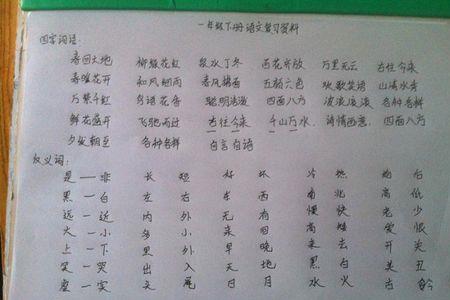 一年级下册语文复习资料
四字词语:
春回大地 柳绿花红 泉水丁冬 百花齐放 万里无云 古往今来
春暖花开 和风细雨 春风拂面 五颜六色 欢歌笑语 山清水秀
万紫千红 鸟语花香 聪明活泼 四面八方 波浪滚滚 各种各样
鲜花盛开 飞驰而过 古往今来 千山万水 诗情画意 四面八方
夕发朝至 各种各样 自言自语
反义词:
是—非 长 短 好 坏 冷 热 黑 白
黑—白 左 右 东 西 南 北 高 低
远—近 内 外 无 有 慢 快 老 少
火—小 多 少 来 回 高 矮 爱 恨
上—下 里 外 早 晚 来 去 开 关
哭—笑 出 入 天 地 黑 白 美 丑
虚—实 头 尾 日 月 水 火 古 今